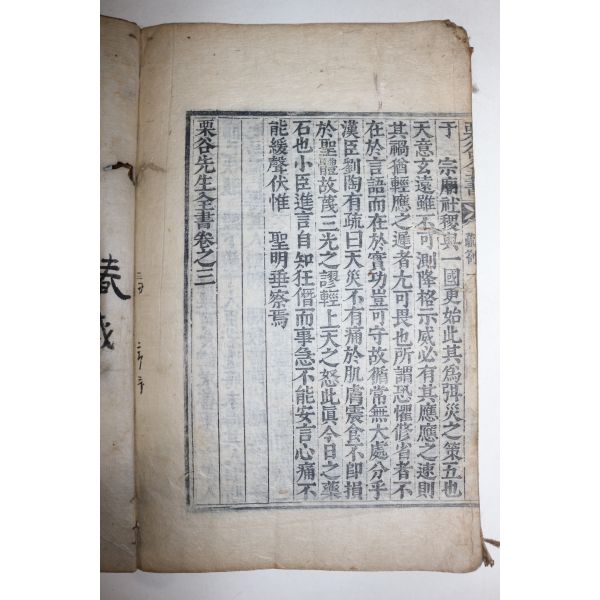 栗谷全書
于 宗廟社稷與一國更始此其爲弭災之策五也
天意玄遠雖不可測降格示威必有其應應之速則
其禍猶輕應之遲者尤可畏也所謂恐懼修省者不
在於言語而在於實功豈可守故循常無大處分乎
漢臣劉陶有疏曰天災不有痛於肌膚震食不卽損
於聖體故蔑三光之謬輕上天之怒此眞今日之藥
石也小臣進言自知狂僭而事急不能安言心痛不
能緩聲伏惟 聖明垂察焉
栗谷先生全書卷之三
春